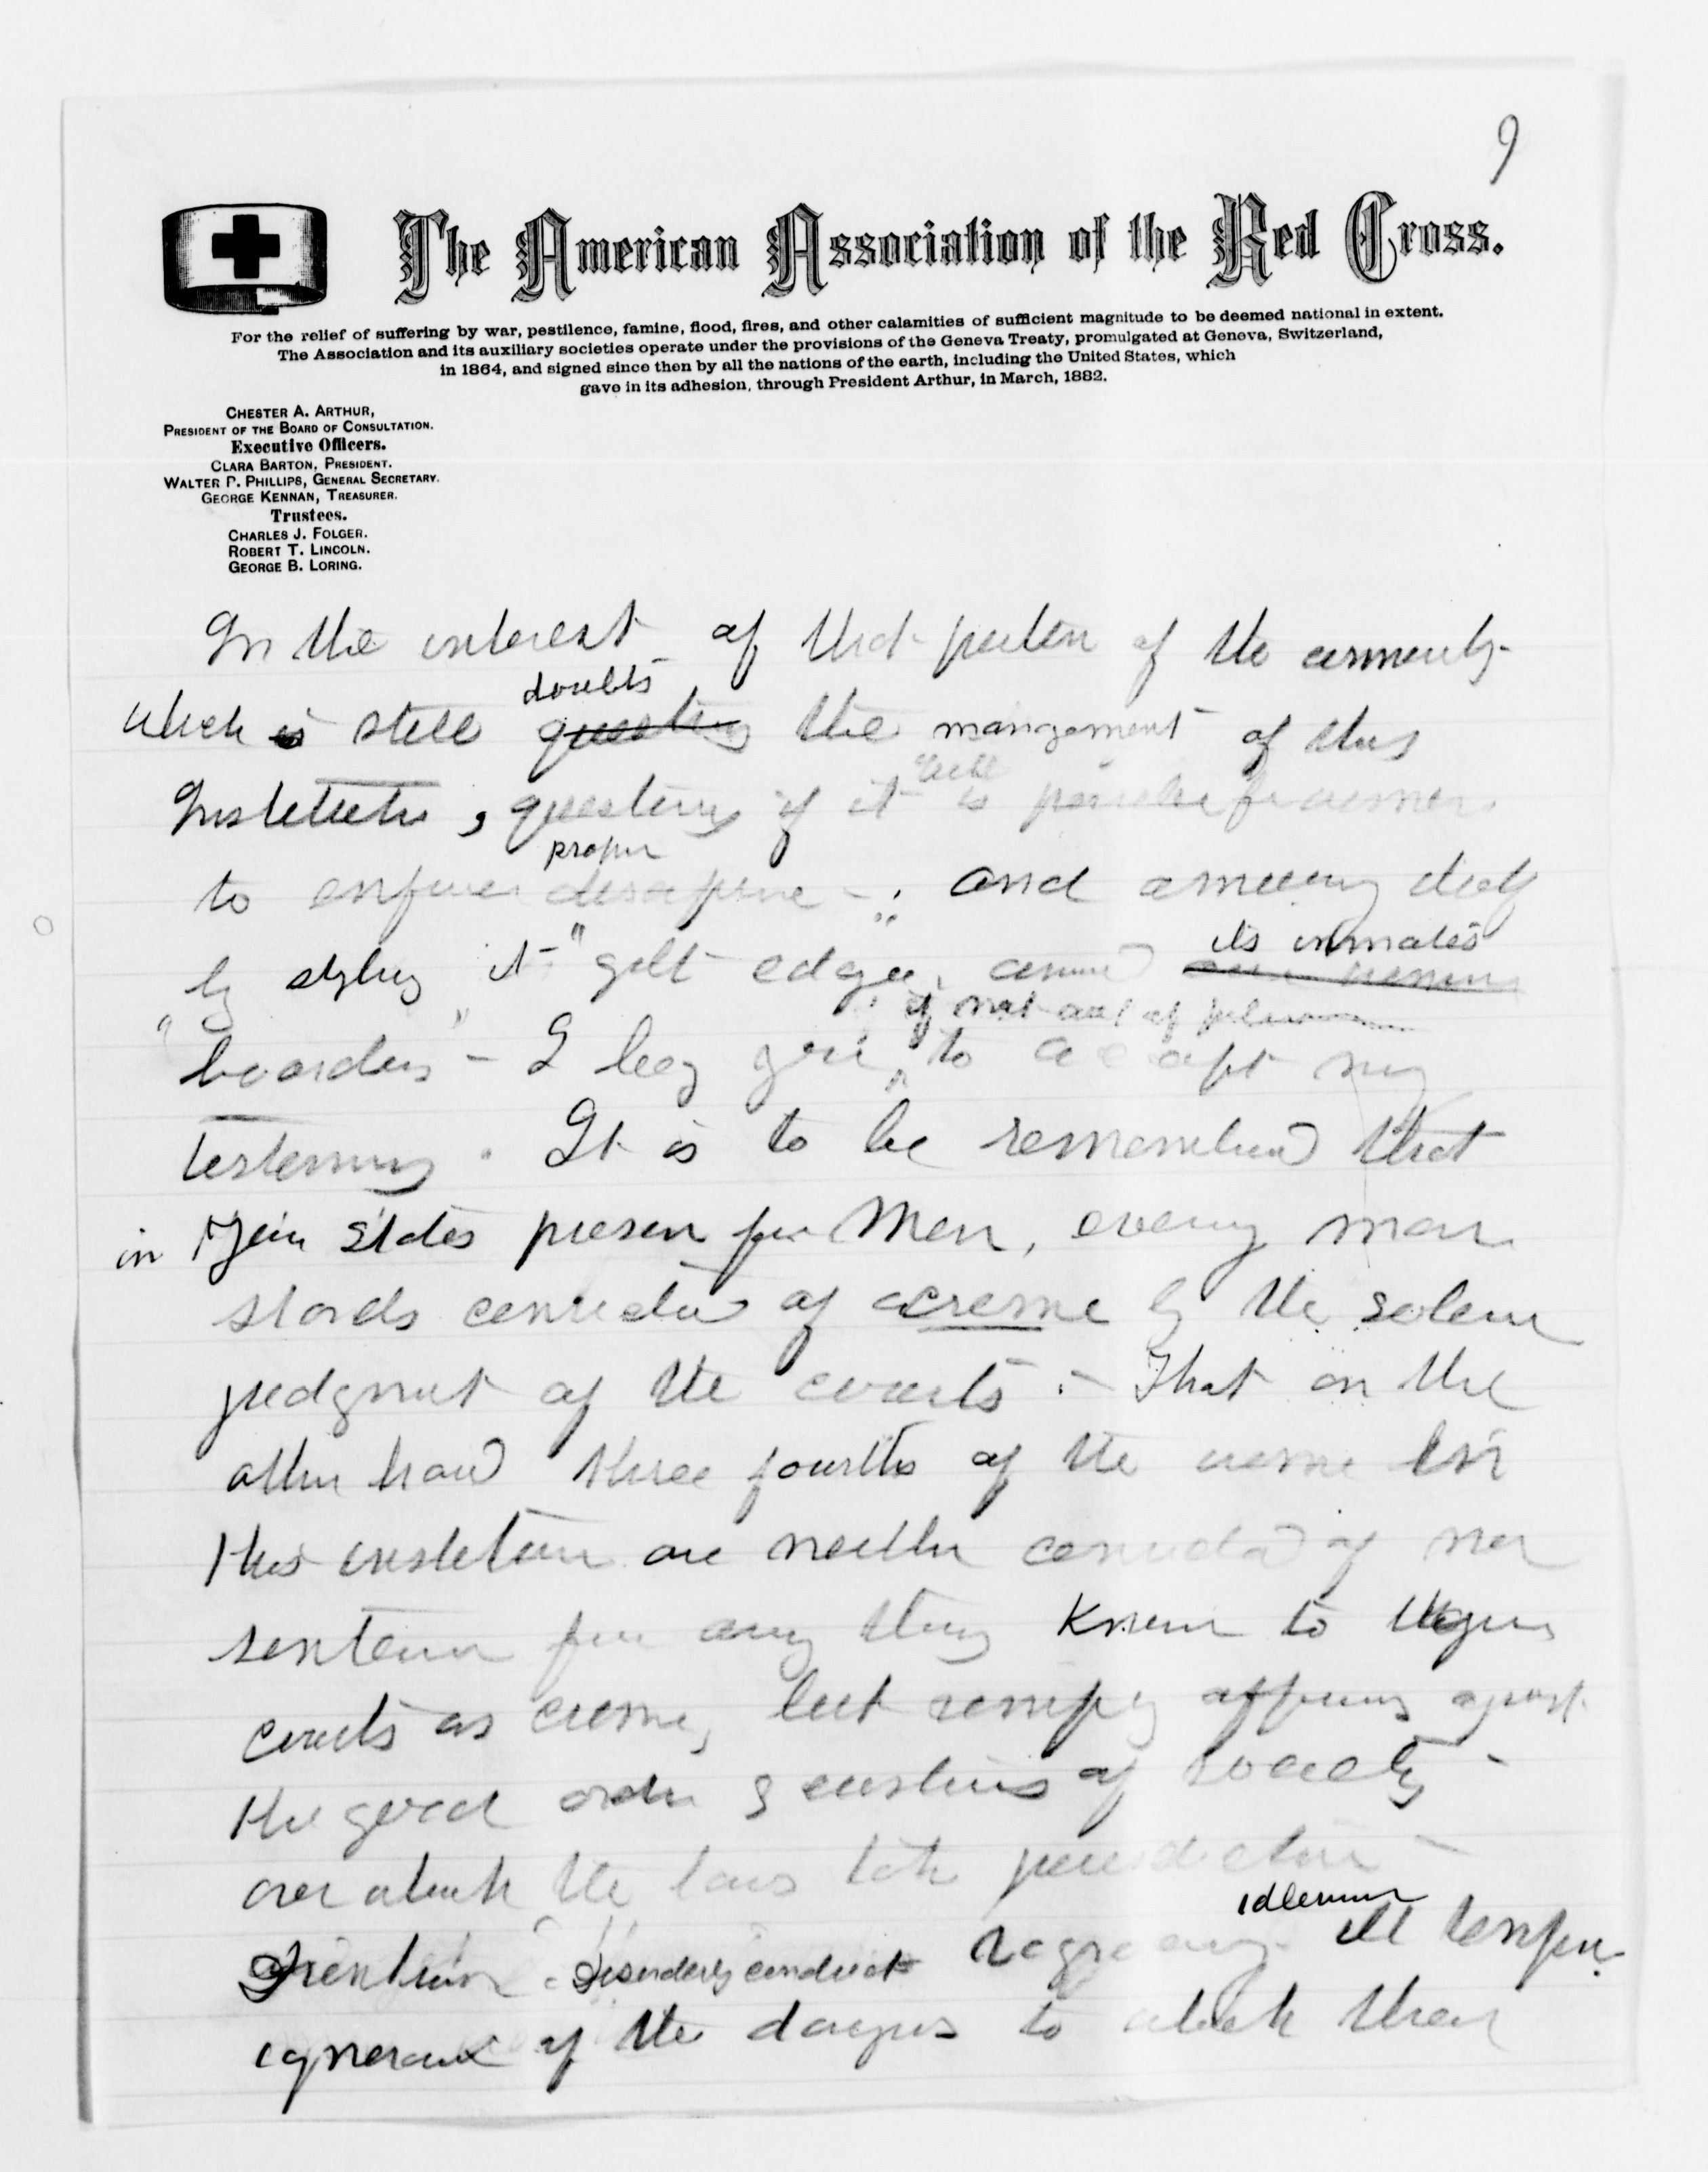 9
The American Association of the Red Cross.
For the relief of suffering by war, pestilence, famine, flood, fires, and other calamities of sufficient magnitude to be deemed national in extent.
The Association and its auxiliary societies operate under the provisions of the Geneva Treaty, promulgated at Geneva, Switzerland,
in 1864, and signed since then by all the nations of the earth, including the United States, which
gave in its adhesion, through President Arthur, in March, 1882.
CHESTER A. ARTHUR,
PRESIDENT OF THE BOARD OF CONSULTATION.
Executive Officers.
CLARA BARTON, PRESIDENT.
WALTER P. PHILLIPS, GENERAL SECRETARY.
GEORGE KENNAN, TREASURER.
Trustees.
CHARLES J. FOLGER.
ROBERT T. LINCOLN.
GEORGE B. LORING.
In the interest of that portion of the community
doubts
which is still questions the mangement of this
Institution, questions if it is possible for women
proper
to enforce discipline - ; and amusing itself
its inmates
by styling it "gilt edge", and our women
if not out of place
"boarders" - I beg you, to accept my
testimony. It is to be remembered that
in your States prison for Men, every man
stands convicted of a crime by the solemn
judgment of the courts :- That on the
other hand three fourths of the women in
this institution are neither convicted of nor
sentenced for any thing known to
courts as crime, but simply offenses against
the good order & customs of society -
over which the laws take jurisdiction -
idleness
Disorderly conduct Vagrancy - Ill temper
ignorance of the dangers to which their